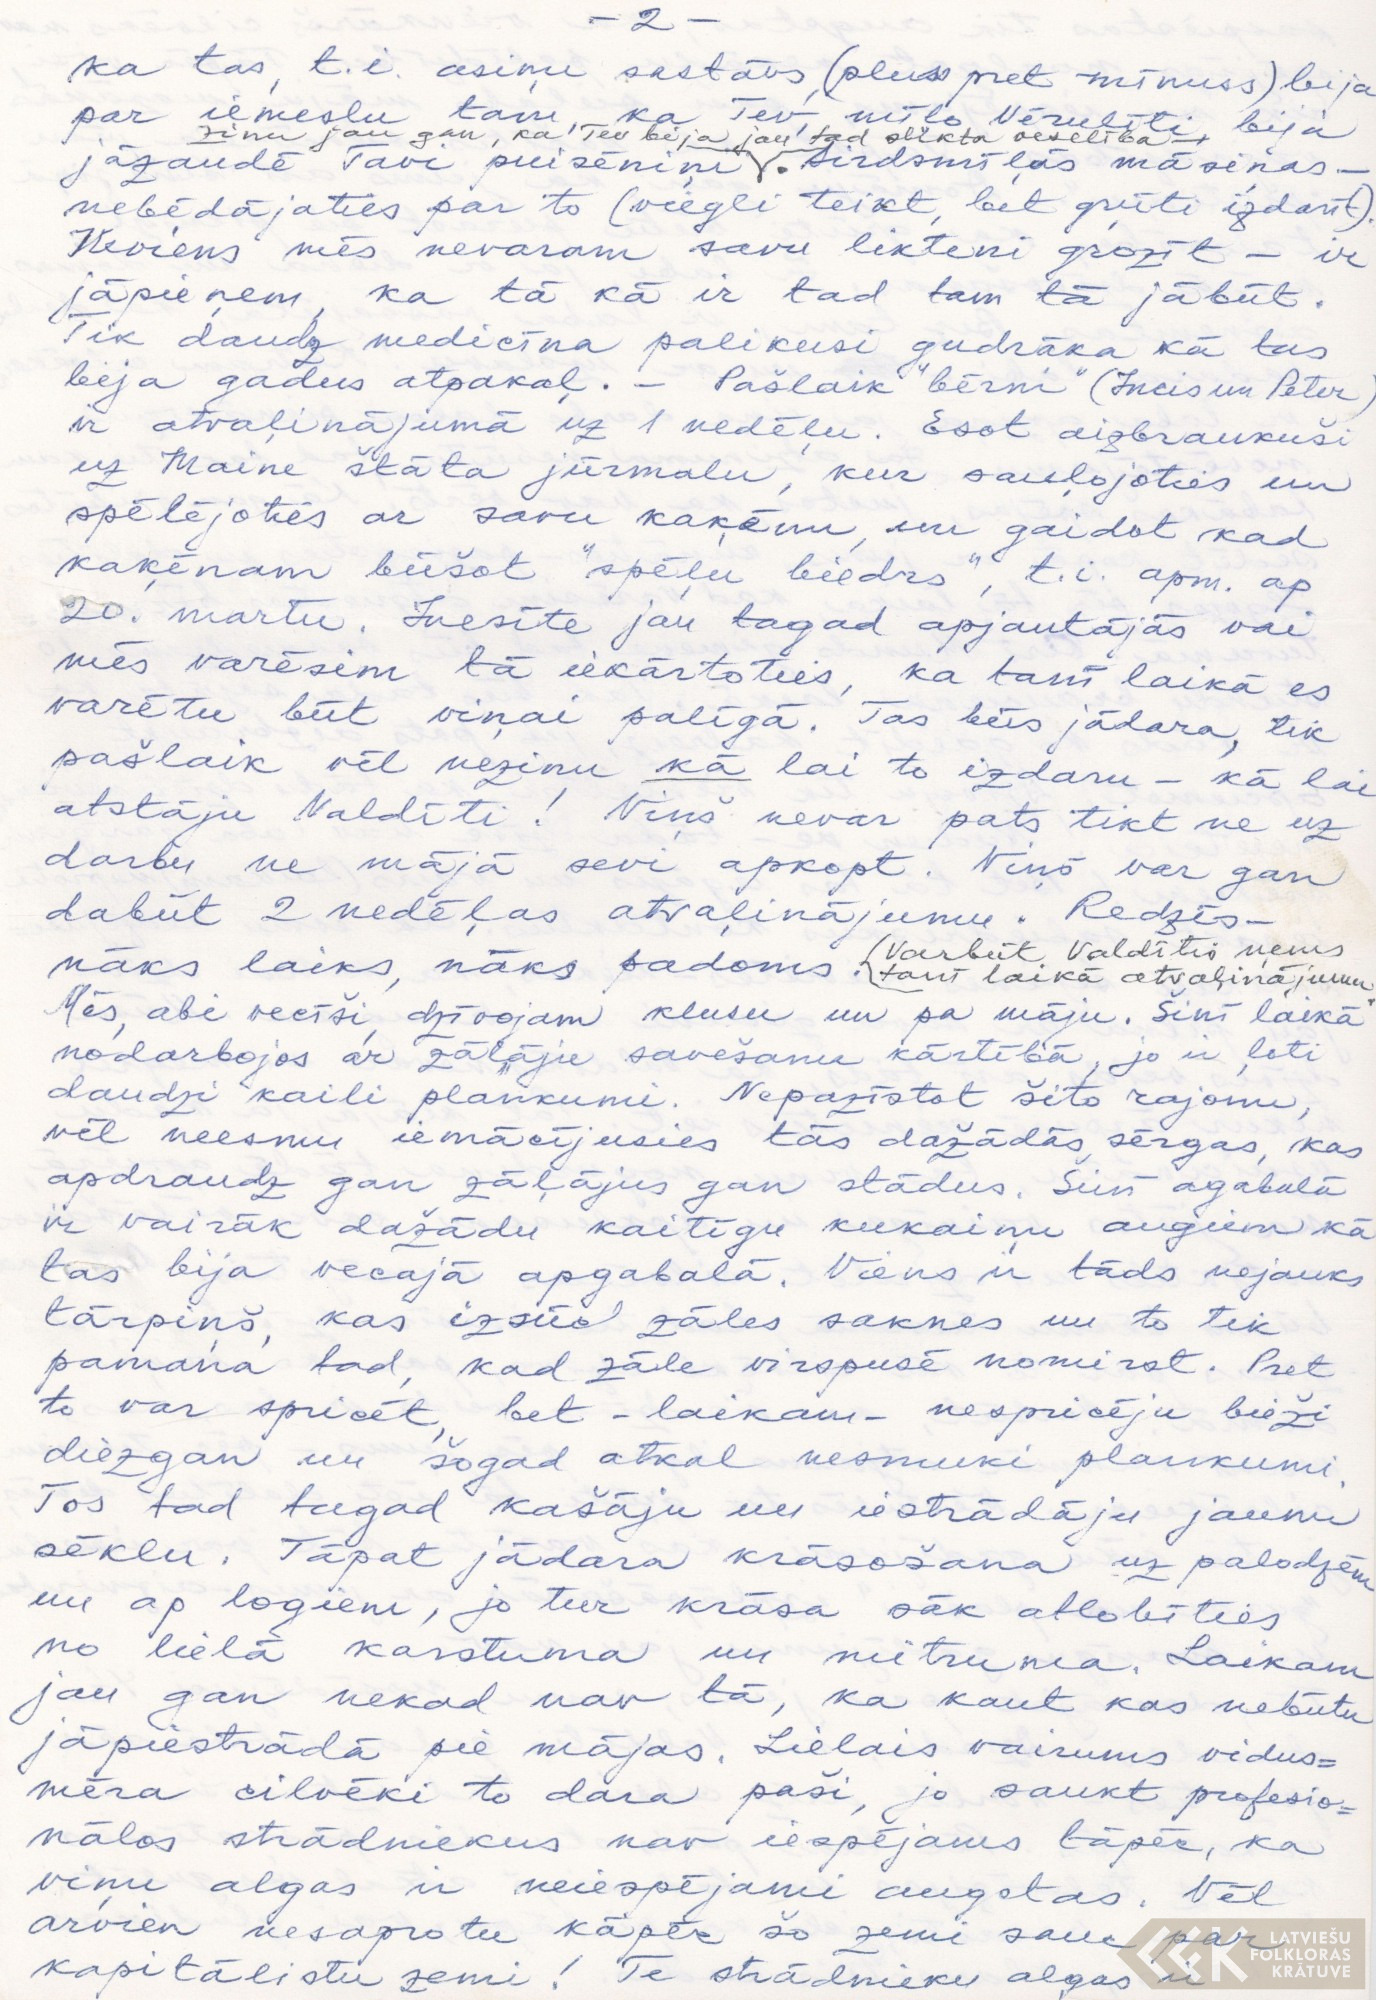 - 2 -
ka tas, t.i. asiņu sastāvs, (pluss pret mīnuss) bija
par iemeslu tam ka Tev, mīļo Vērulīti bija
zinu jau gan, ka Tev bija jau tad slikta veselība
jāzaudē Tavi puisēniņi. Sirdsmīļās māsiņas -
nebēdājaties par to (viegli teikt, bet grūti izdarīt).
Neviens mēs nevaram savu likteni grozīt - ir
jāpieņem, ka tā kā ir tad tam tā jābūt.
Tik daudz medicīna palikusi gudrāka kā tas
bija gadus atpakaļ. - Pašlaik "bērni" (Incis un Peter)
ir atvaļinājumā uz 1 nedēļu. Esot aizbraukuši
uz Maine štāta jūrmalu, kur sauļojoties un
spēlējoties ar savu kaķēnu, un gaidot kad
kaķēnam būšot "spēļu biedrs", t.i. apm. ap
20. martu. Inesīte jau tagad apjautājās vai
mēs varēsim tā iekārtoties, ka tanī laikā es
varētu būt viņai palīgā. Tas būs jādara, tik
pašlaik vēl nezinu kā lai to izdaru - kā lai
atstāju Valdīti! Viņš nevar pats tikt ne uz
darbu ne mājā sevi apkopt. Viņš var gan
dabūt 2 nedēļas atvaļinājumu. Redzēs -
nāks laiks, nāks padoms. (Varbūt Valdītis ņems
tanī laikā atvaļinājumu.
Mēs, abi vecīši, dzīvojam klusu un pa māju. Šinī laikā
nodarbojos ar zāļāju savešanu kārtībā, jo ir ļoti
daudzi kaili plankumi. Nepazīstot šito rajonu,
vēl neesmu iemācījusies tās dažādās sērgas, kas
apdraudz gan zāļājus gan stādus. Šinī agabalā
ir vairāk dažādu kaitīgu kukaiņu augiem kā
tas bija vecajā apgabalā. Viens ir tāds nejauks
tārpiņš, kas izsūc zāles saknes un to tik
pamana tad, kad zāle virspusē nomirst. Pret
to var spricēt, bet - laikam - nespricēju bieži
diezgan un šogad atkal nesmuki plankumi.
Tos tad tagad kašāju un iestrādāju jaunu
sēklu. Tāpat jādara krāsošana uz palodzēm
un ap logiem, jo tur krāsa sāk atlobīties
no lielā karstuma un mitruma. Laikam
jau gan nekad nav tā, ka kaut kas nebūtu
jāpiestrādā pie mājas. Lielais vairums vidus=
mēra cilvēki to dara paši, jo saukt profesio=
nālos strādniekus nav iespējams tāpēc, ka
viņu algas ir neiespējami augstas. Vēl
arvien nesaprotu kāpēc šo zemi sauc par
kapitālistu zemi! Te strādnieku algas ir
LATVIEŠU
FOLKLORAS
KRĀTUVE